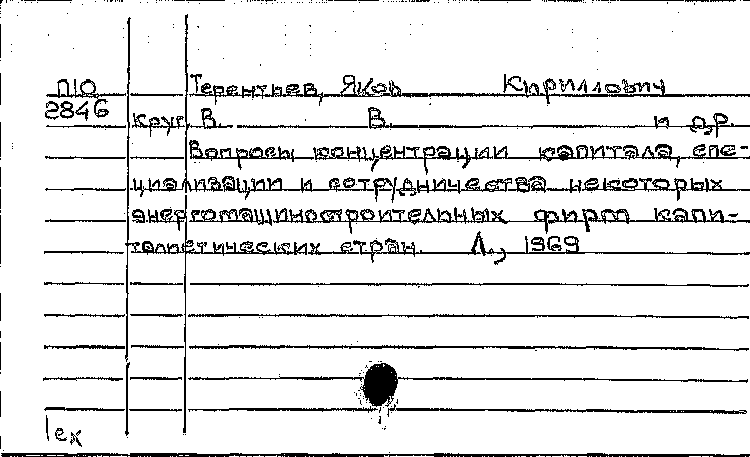 П10 Терентьев, Яков Кириллович
2846 Круг, В. В. и др.
Вопросы концентрации капитала, спе-
циализации и сотрудничества некоторых
энергомашиностроительных фирм капи-
талистических стран. Л., 1969
1ех